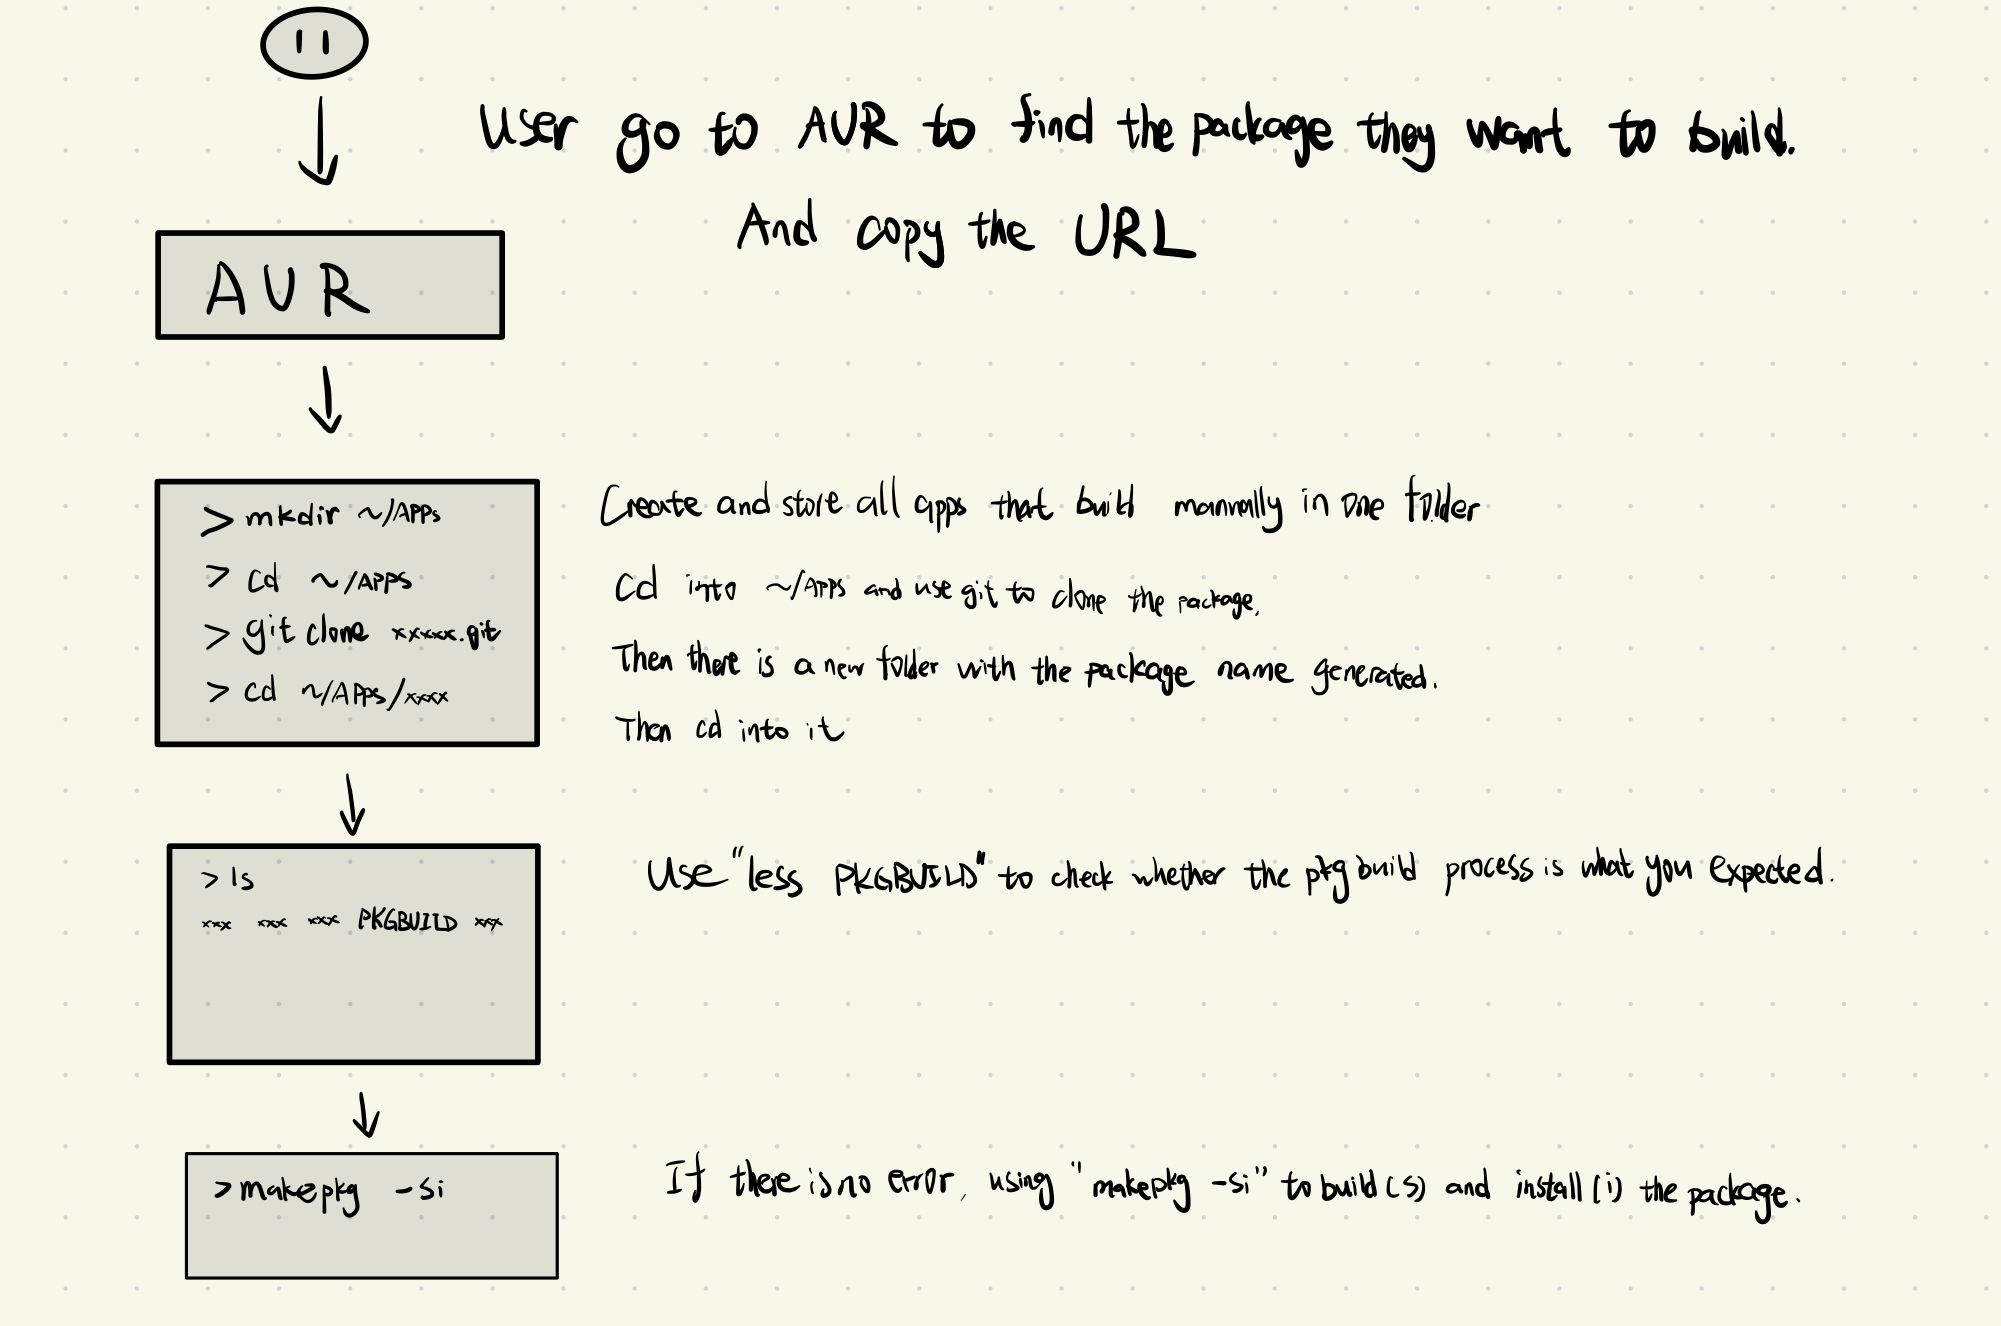 User go to AUR to find the package they want to build.
And copy the URL
AUR
> mkdir ~/APPs
> cd ~/APPS
> git clone xxxxx.git
> cd ~/APPs/xxxx
Create and store all apps that build manually in one folder
Cd into ~/APPS and use git to clone the package.
Then there is a new folder with the package name generated.
Then cd into it
> ls
xxx xxx xxx PKGBUILD xxx
Use "less PKGBUILD" to check whether the pkg build process is what you expected.
> makepkg -si
If there is no error, using "makepkg -si" to build (s) and install (i) the package.